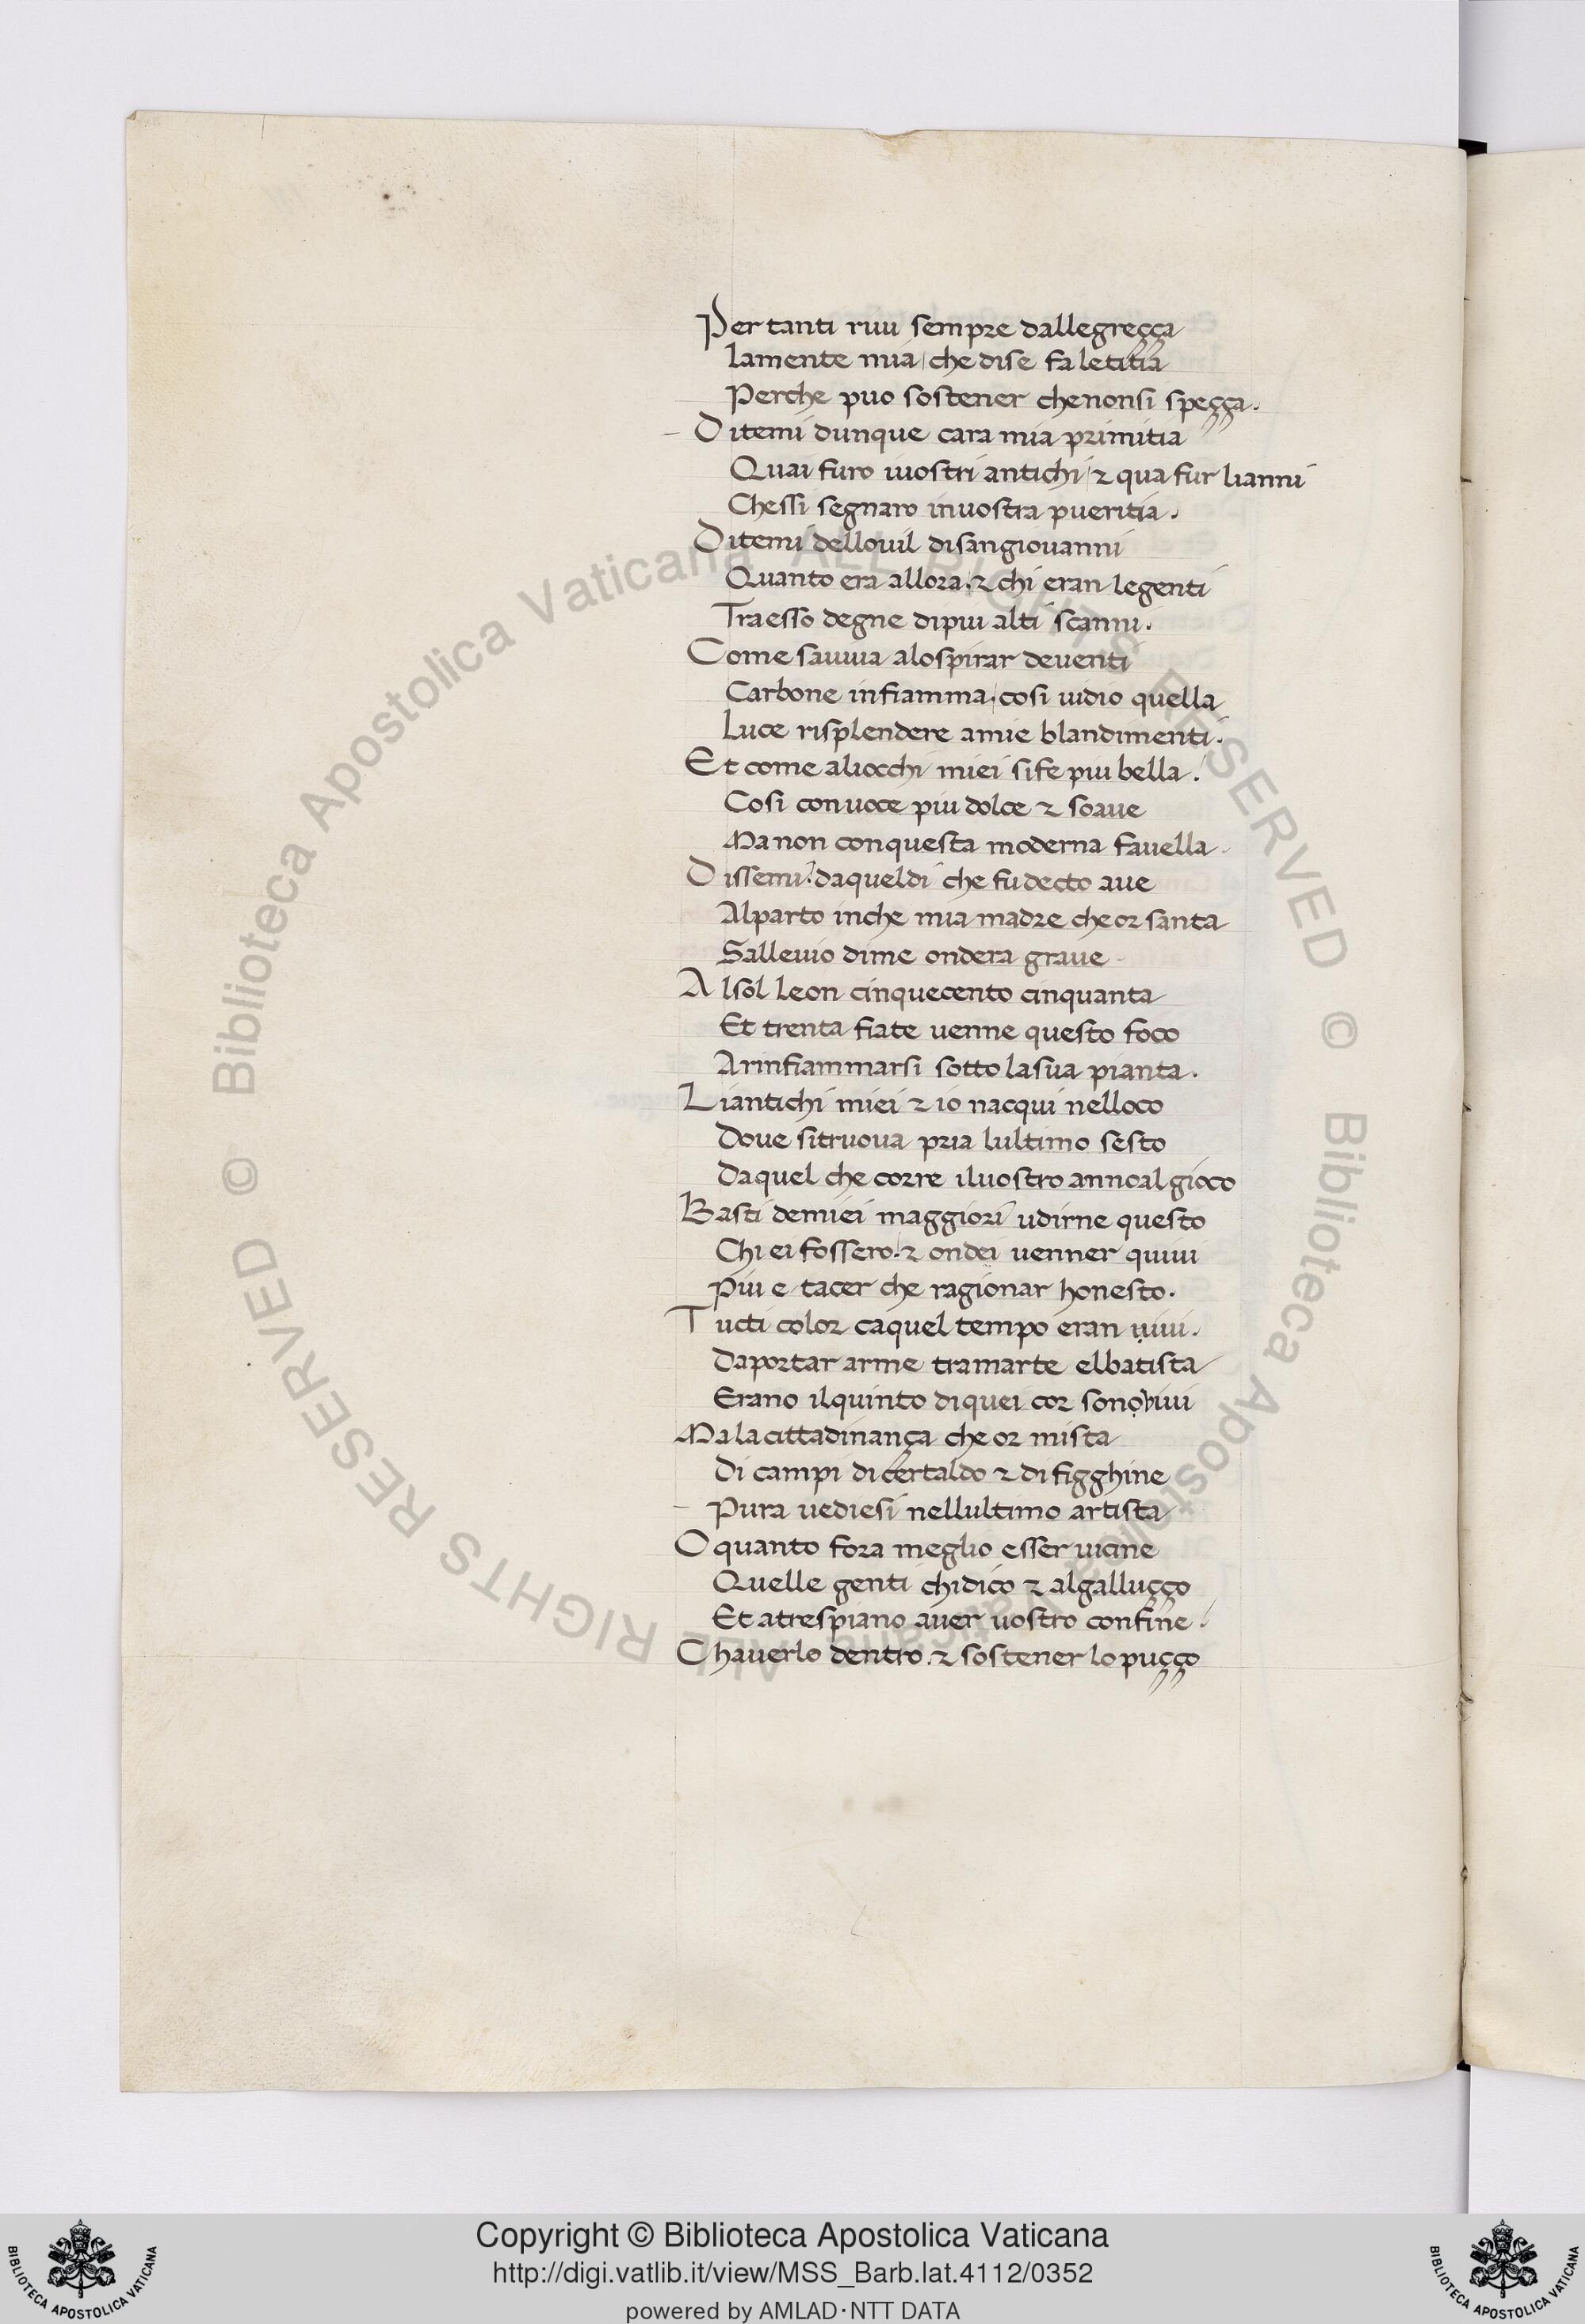 Per tanti rivi sempre dallegreçça
lamente mia che dise fa letitia
Perche puo sostener chenonsi speçça.
Ditemi dunque cara mia primitia
Quai furo ivostri antichi & qua fur lianni
Chessi segnaro invostra pueritia.
Ditemi dellovil disangiovanni
Quanto era allora, & chi eran legenti
Traesso degne dipiu alti scanni.
Come savviva alospirar deventi
Carbone infiamma. cosi vidio quella
Luce risplendere amie blandimenti.
Et come aliocchi miei sife piu bella.
Cosi convoce piu dolce & soave
Manon conquesta moderna favella.
Dissemi. daqueldi che fu decto ave
Alparto inche mia madre che or santa
Sallevio dime ondera grave
Alsol leon cinquecento cinquanta
Et trenta fiate venne questo foco
Arinfiammarsi sotto lasua pianta.
Liantichi miei & io nacqui nelloco
Dove sitruova pria lultimo sesto
Daquel che corre ilvostro annoal gioco
Basti demiei maggiori udirne questo
Chi ei fossero. & ondei venner quivi
Piu e tacer che ragionar honesto.
Tucti color caquel tempo eran ivivi.
Daportar arme tramarte elbatista
Erano ilquinto diquei cor sono vivi
Malacittadinança che or mista
Di campi dicertaldo & di figghine
Pura vediesi nellultimo artista
Oquanto fora meglio esser vicine
Quelle genti chidico & algalluçço
Et atrespiano aver vostro confine.
Chaverlo dentro. & sostener lo puçço
© Biblioteca Apostolica Vaticana ALL RIGHTS RESERVED © Biblioteca Apostolica Vaticana ALL RIGHTS RESERVED
BIBLIOTECA APOSTOLICA VATICANA
Copyright © Biblioteca Apostolica Vaticana
http://digi.vatlib.it/view/MSS_Barb.lat.4112/0352
powered by AMLAD·NTT DATA
BIBLIOTECA APOSTOLICA VATICANA